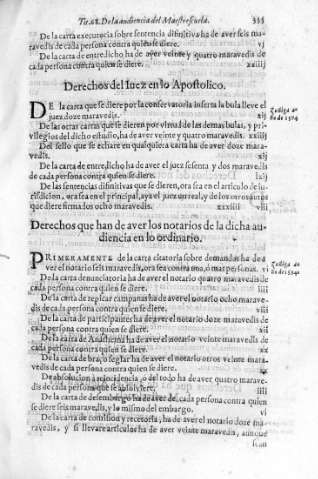 Tit. 68. De la audiencia del Maestrescuela. 355
De la carta executoria sobre sentencia difinitiva ha de aver seis ma
ravedis de cada persona contra quien se diere. vj
De la carta de entredicho ha de aver veinte y quatro maravedis de
cada persona contra quien se diere. xxiiij
Derechos del Iuez en lo Apostolico.
DE la carta que se diere por la conservatoria inserta la bula lleve el
juez doze maravedis. xij
De las otras cartas que se dieren por virtud de las demas bulas, y pri
villegios del dicho estudio, ha de aver veinte y quatro maravedis xxiiij
Del sello que se echare en qualquier carta ha de aver doze mara-
vedis. xij
De la carta de entredicho ha de aver el juez sesenta y dos maravedis
de cada persona contra quien se diere. lxij
De las sentencias difinitivas que se dieren, ora sea en el articulo de iu-
risdicion, ora sea en el principal, aya el juez un real, y de los otros autos
que diere firmados ocho maravedis. xxxiiij viij
Derechos que han de aver los notarios de la dicha au
diencia en lo ordinario.
PRIMERAMENTE de la carta citatoria sobre demandas ha de a
ver el notario seis maravedis, ora sea contra una, o mas personas. vj
De la carta denunciatoria ha de aver el notario quatro maravedis de
cada persona contra quien se diere. iiij
De la carta de replicar campanas ha de aver el notario ocho marave-
dis de cada persona contra quien se diere. viij
De la carta de participantes ha de aver el notario doze maravedis de
cada persona contra quien se diere. xij
De la carta de Anathema ha de aver el notario veinte maravedis de
cada persona contra quien se diere. xx
De la carta de braço seglar ha de aver el notario otros veinte mara-
vedis de cada persona contra quien se diere. xx
De absolucion a reincidencia, o del todo ha de aver quatro marave-
dis de cada persona que se absolviere. iiij
De la carta de desembargo ha de aver de cada persona contra quien
se diere seis maravedis, y lo mismo del embargo. vj
De la carta de comision y receptoria, ha de aver el notario doze ma
ravedis, y si llevare articulos ha de aver veinte maravedis, aunque